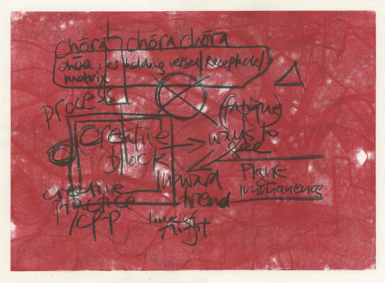 Chōra chōra chōra
chōra: es holding vessel / Receptacle /
matrix
process
fatigue
creative
block
ways to
see
Plane
immanence
inward
trend
creative
practice
/CFP
lines of
flight